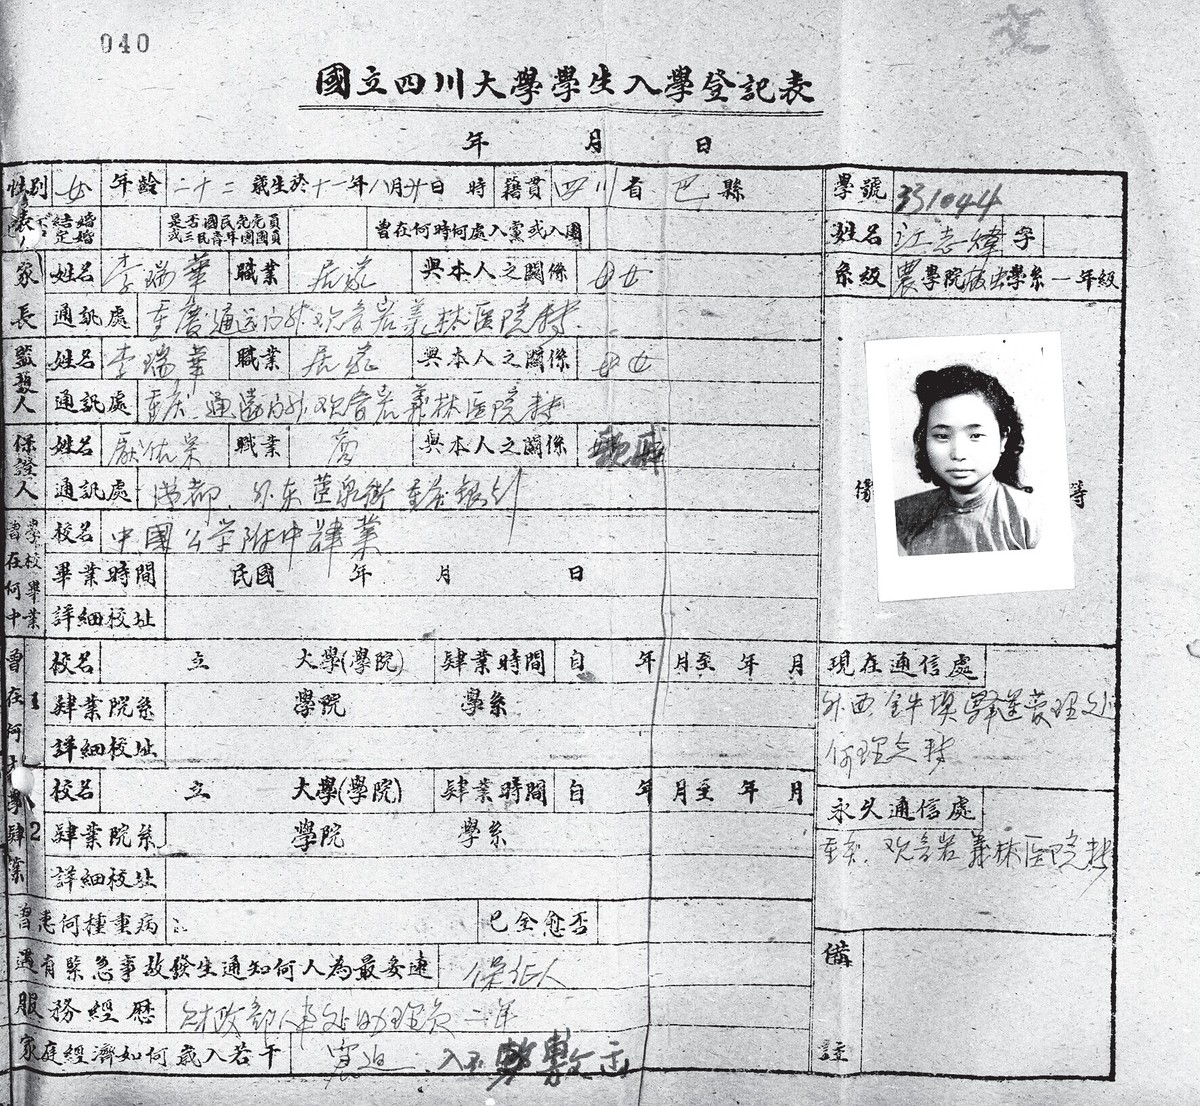 040
國立四川大學學生入學登記表
年 月 日
性別 女 年齡 二十二 歲生於十一年八月廿日 時 籍貫 四川 省 巴 縣
學號 331044
結婚 定婚 是否國民党党員或三民青年團團員 曾在何時何處入黨或入團
姓名 江志煒 字
家長 姓名 李瑞華 職業 居家 與本人之關係 母女
系級 農學院 學系一年級
通訊處 重慶通远门外观音岩义林医院转
監護人 姓名 李瑞華 職業 居家 與本人之關係 母女
通訊處 重庆 通遠门外 观音岩義林医院转
保證人 姓名 職業 商 與本人之關係 親戚
通訊處 成都 外东 街 重庆银行
備 等
曾在何中學校畢業 校名 中國公学附中肄業
畢業時間 民國 年 月 日
詳細校址
曾在何大學肄業
1 校名 立 大學(學院) 肄業時間 自 年 月至 年 月
現在通信處
肄業院系 學院 學系
外西
詳細校址
转
2 校名 立 大學(學院) 肄業時間 自 年 月至 年 月
永久通信處
肄業院系 學院 學系
重庆 观音岩義林医院转
詳細校址
曾患何種重病 已全愈否
備註
遇有緊急事故發生通知何人為最妥速 保证人
服務經歷 财政部人事处助理员 二年
家庭經濟如何歲入若干 窘迫 入不敷出